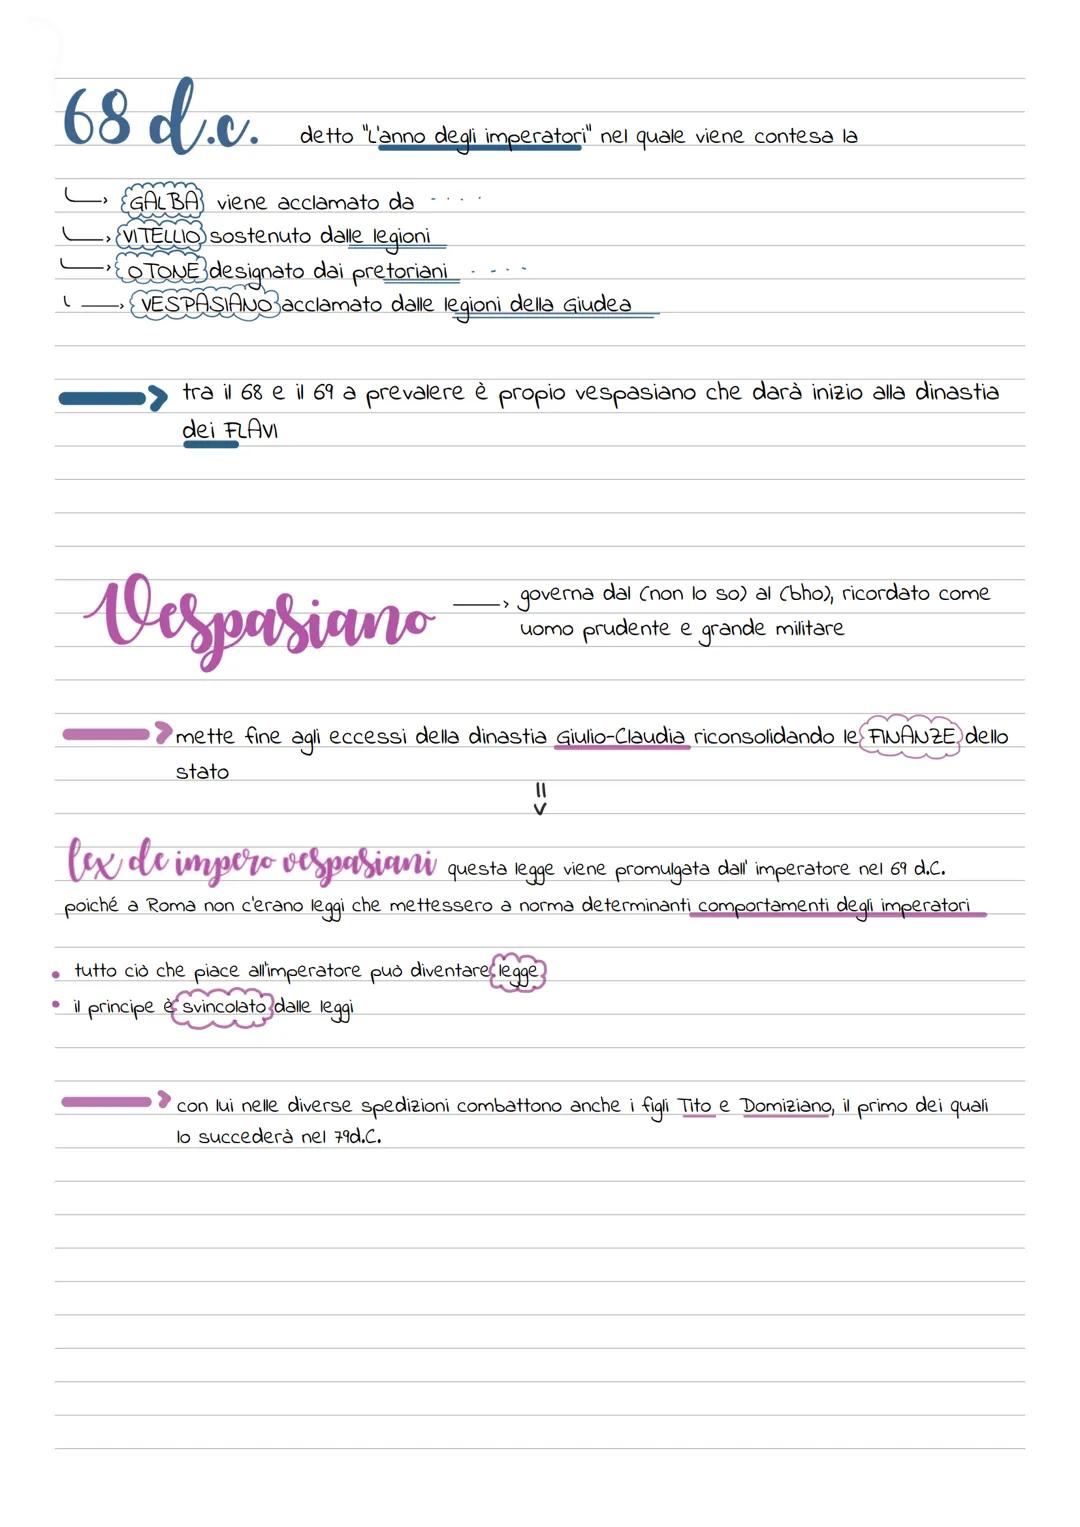 68 d.c. detto "L'anno degli imperatori" nel quale viene contesa la
GALBA viene acclamato da ....
VITELLIO sostenuto dalle legioni
OTONE designato dai pretoriani ....
VESPASIANO acclamato dalle legioni della Giudea
tra il 68 e il 69 a prevalere è propio vespasiano che darà inizio alla dinastia
dei FLAVI
Vespasiano governa dal (non lo so) al (bho), ricordato come
uomo prudente e grande militare
mette fine agli eccessi della dinastia Giulio-Claudia riconsolidando le FINANZE dello
stato
lex de impero vespasiani questa legge viene promulgata dall' imperatore nel 69 d.C.
poiché a Roma non c'erano leggi che mettessero a norma determinanti comportamenti degli imperatori
• tutto ciò che piace all'imperatore può diventare legge
• il principe è svincolato dalle leggi
con lui nelle diverse spedizioni combattono anche i figli Tito e Domiziano, il primo dei quali
lo succederà nel 79d.C.